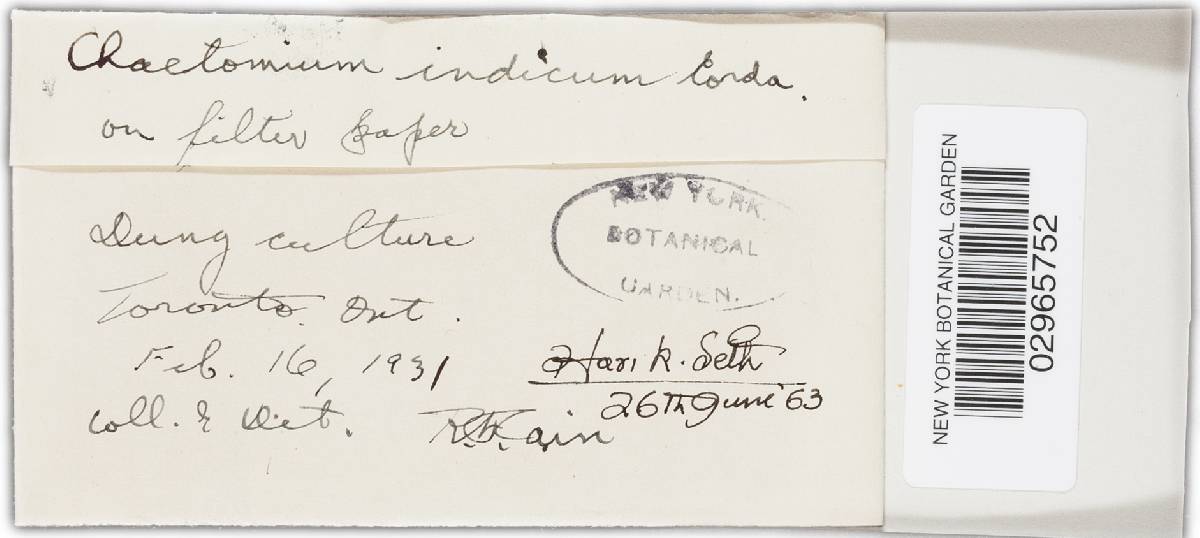 Chaetomium indicum Corda.
on filter paper
Dung culture
Toronto. Ont.
Feb. 16, 1931
Coll. & Det. R.F. Cain
NEW YORK
BOTANICAL
GARDEN.
Hari K. Seth
26th June '63
NEW YORK BOTANICAL GARDEN
02965752